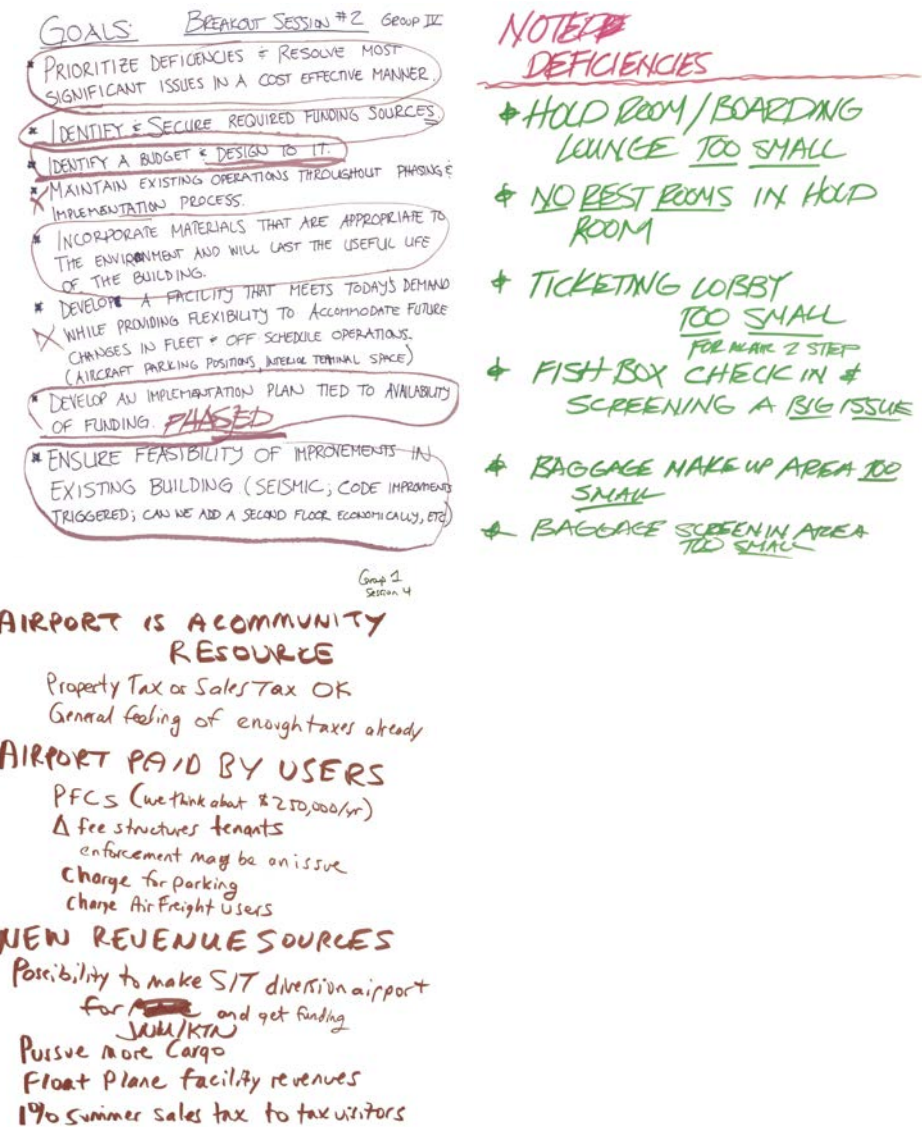 GOALS: BREAKOUT SESSION #2 GROUP IV
* PRIORITIZE DEFICENCIES & RESOLVE MOST
SIGNIFICANT ISSUES IN A COST EFFECTIVE MANNER.
* IDENTIFY & SECURE REQUIRED FUNDING SOURCES.
* IDENTIFY A BUDGET & DESIGN TO IT.
* MAINTAIN EXISTING OPERATIONS THROUGHOUT PHASING &
IMPLEMENTATION PROCESS.
* INCORPORATE MATERIALS THAT ARE APPROPRIATE TO
THE ENVIRONMENT AND WILL LAST THE USEFUL LIFE
OF THE BUILDING.
* DEVELOP A FACILITY THAT MEETS TODAY'S DEMAND
WHILE PROVIDING FLEXIBILITY TO ACCOMMODATE FUTURE
CHANGES IN FLEET & OFF SCHEDULE OPERATIONS.
(AIRCRAFT PARKING POSITIONS, INTERIOR TERMINAL SPACE)
* DEVELOP AN IMPLEMENTATION PLAN TIED TO AVAILABILITY
OF FUNDING. PHASED
* ENSURE FEASIBILITY OF IMPROVEMENTS IN
EXISTING BUILDING (SEISMIC; CODE IMPROVMENTS
TRIGGERED; CAN WE ADD A SECOND FLOOR ECONOMICALLY, ETC)
NOTED
DEFICIENCIES
* HOLD ROOM/BOARDING
LOUNGE TOO SMALL
* NO REST ROOMS IN HOLD
ROOM
* TICKETING LOBBY
TOO SMALL
FOR AKAIR 2 STEP
* FISH BOX CHECK IN &
SCREENING A BIG ISSUE
* BAGGAGE MAKE UP AREA TOO
SMALL
* BAGGAGE SCREENIN AREA
TOO SMALL
Group 1
Session 4
AIRPORT IS A COMMUNITY
RESOURCE
Property Tax or Sales Tax OK
General feeling of enough taxes already
AIRPORT PAID BY USERS
PFCs (we think about $250,000/yr)
Δ fee structures tenants
enforcement may be an issue
Charge for parking
Charge Air Freight Users
NEW REVENUE SOURCES
Possibility to make SIT diversion airport
for and get funding
JNU/KTN
Pursue more Cargo
Float Plane facility revenues
1% summer sales tax to tax visitors